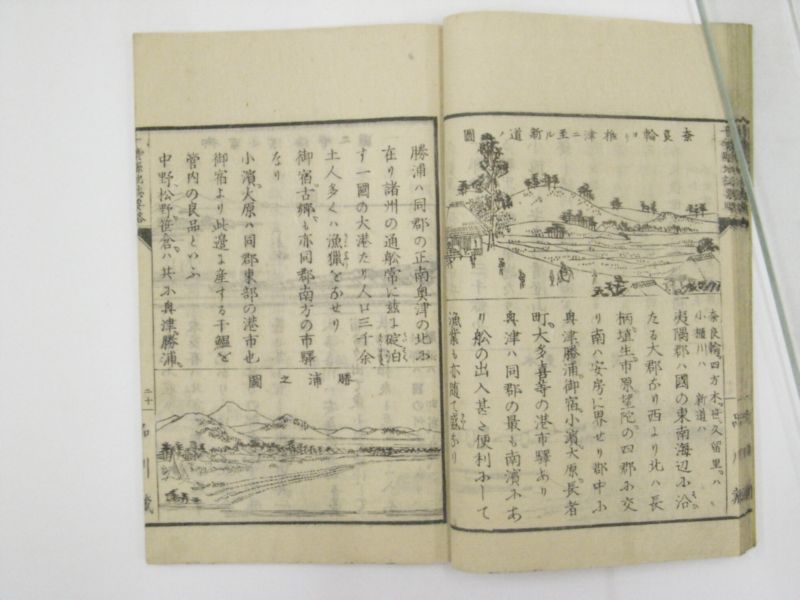 奈良輪ヨリ椎津ニ至ル新道ノ圖
奈良輪。四方木。世久留里。ハ
小櫃川ハ新道ハ
夷隅郡ハ國の東南海辺ふ沿
たる大郡なり西より北ハ長
柄埴生市原望陀の四郡ふ交
り南ハ安房に界せり郡中ふ
奥津勝浦御宿小濱大原長者
町大多喜等の港市驛あり
奥津ハ同郡の最も南濱ふあ
り舩の出入甚と便利ふして
漁業も亦随て盛なり
勝浦ハ同郡の正南奥津の北ふ
在り諸州の通舩常に茲に碇泊
す一國の大港たり人口三千余
土人多くハ漁猟を為せり
御宿古郷も亦同郡南方の市驛
なり
小濱大原ハ同郡東部の港市也
御宿より此邊に産する干鰮を
管内の良品といふ
中野松野笹倉ハ共ふ奥津勝浦
勝浦之圖
二十